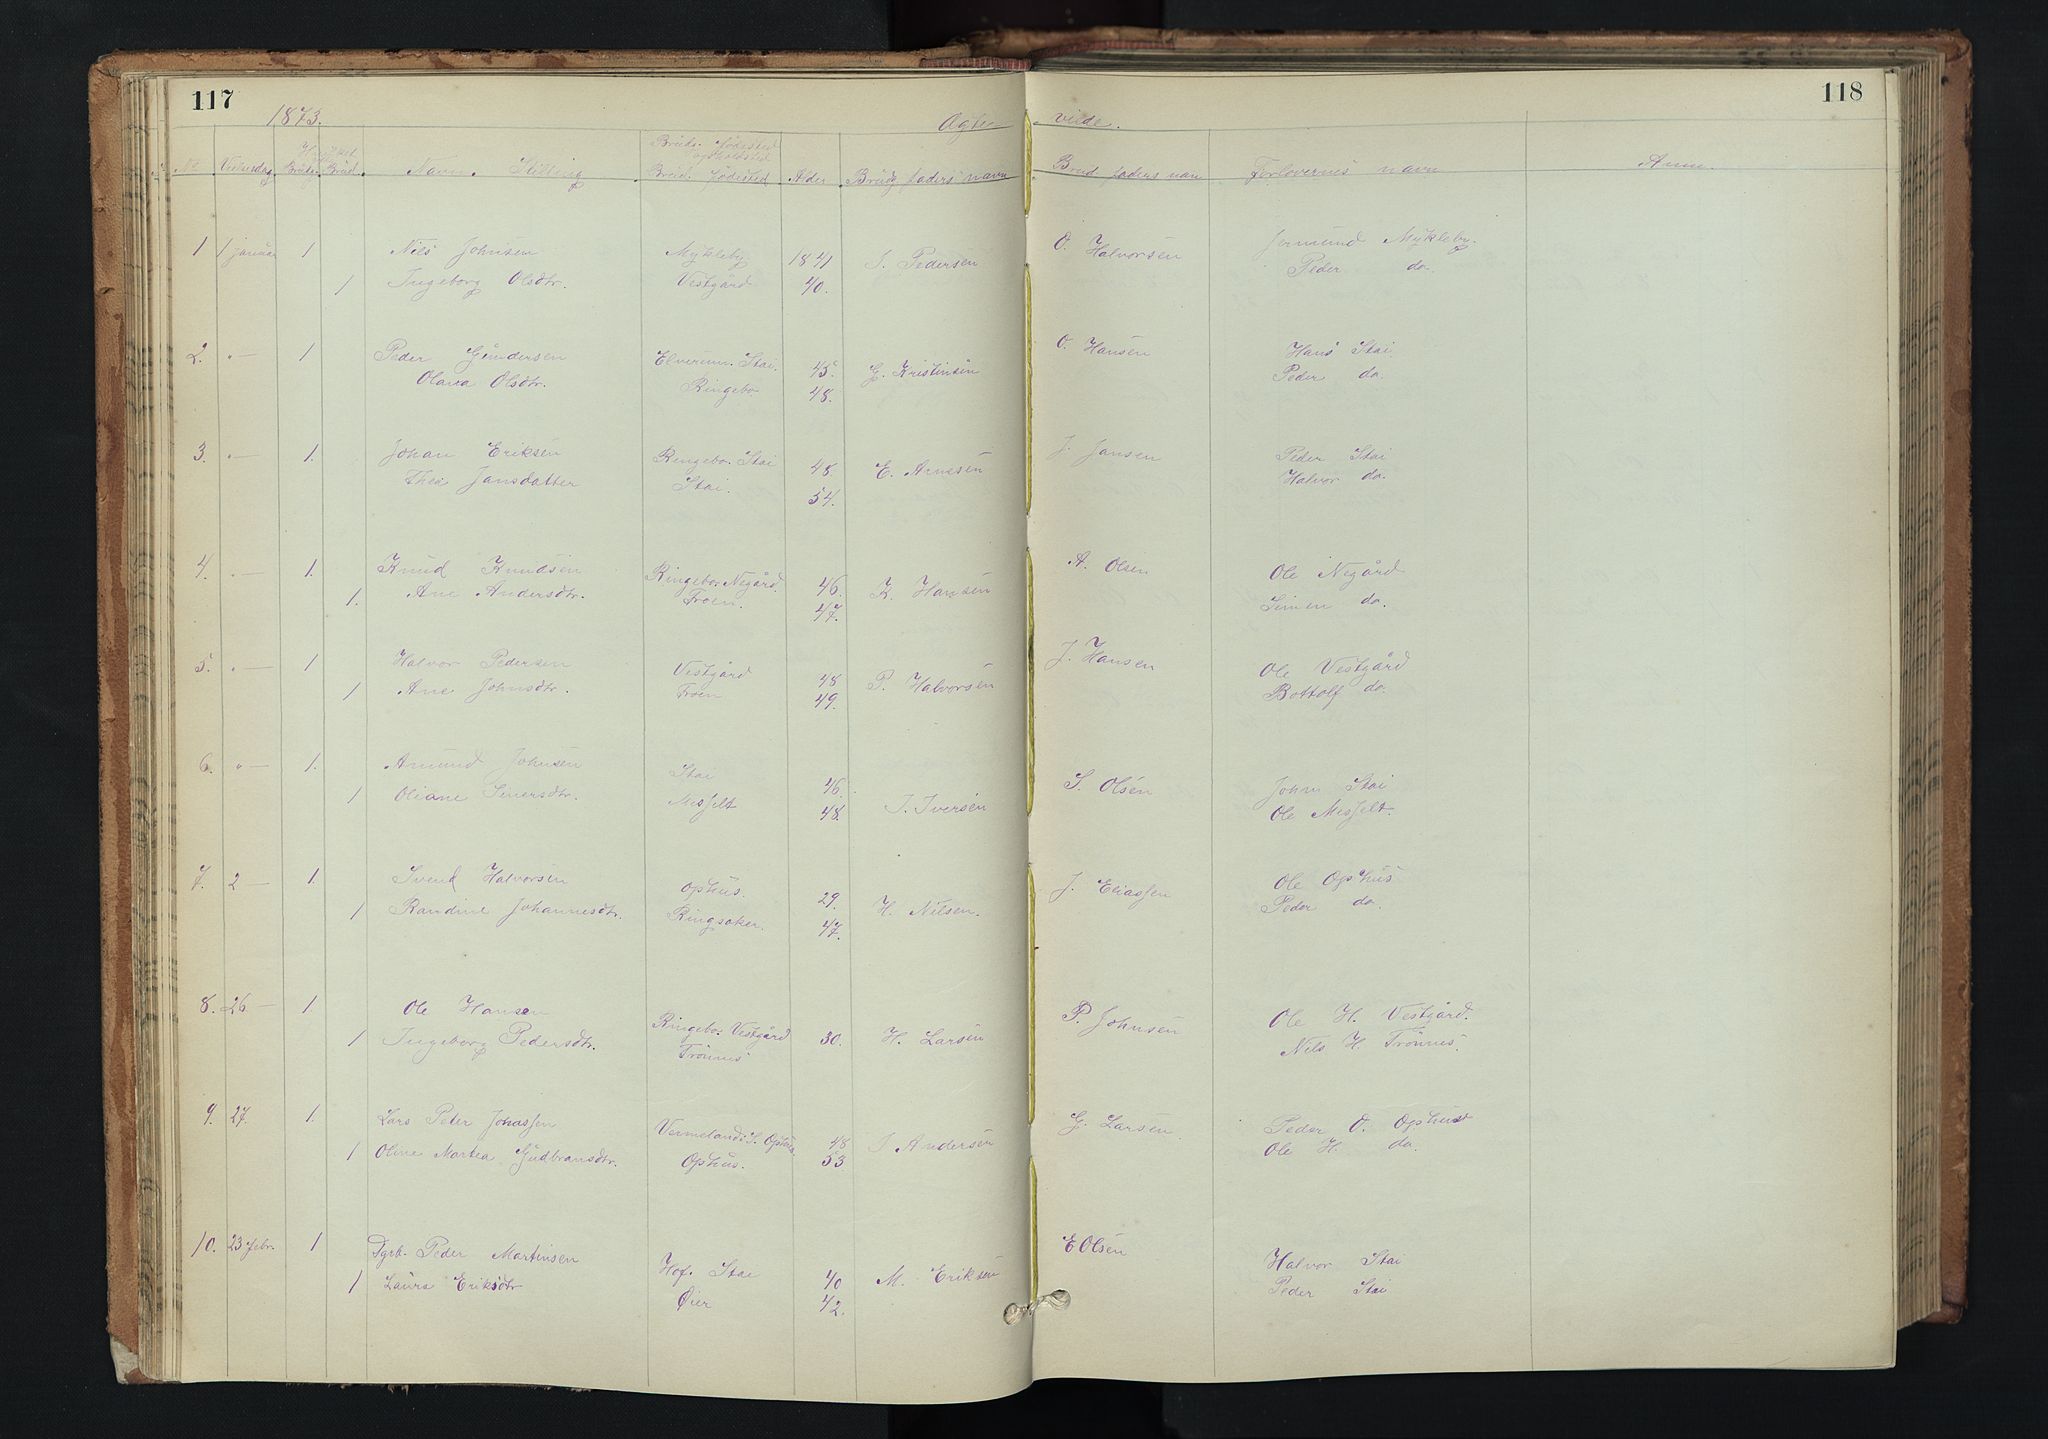 117
118
1873.
Ægte
vi
de.
No Vielsesdag Brudg. Brud Navn. Stilling Brudg. fødested opholdsted Brud. fødested Alder Brudg faders navn Brud faders navn Forlovernes navn Anm.
1 1 januar 1 Nils Johnsen Mykleby 1841 J. Pedersen O. Halvorsen Jermund Mykleby.
1 Ingeborg Olsdtr. Vestgård 40. Peder do.
2. 1 Peder Gundersen Elverum. Stai. 45. G. Kristinsen O. Hansen Hans Stai
Olava Olsdtr. Ringebo 48. Peder do.
3. 1. Johan Eriksen Ringebo. Stai 48 E. Arnesen J. Jansen Peder Stai
Thea Jansdatter Stai. 54. Halvor do.
4. 1. Knud Knudsen Ringebo. Negård. 46. K. Hansen A. Olsen Ole Negård
1. Ane Andersdtr. Froen. 47. Simen do.
5. 1 Halvor Pedersen Vestgård 48 P. Halvorsen J. Hansen Ole Vestgård
1 Ane Johnsdtr. Froen 49. Bottolf do.
6. 1. Amund Johnsen Stai 46. J. Iversen S. Olsen John Stai
1 Oliane Siversdtr. Messelt 48. Ole Messelt.
7. 2 — 1. Svend Halvorsen Ophus. 29. H. Nilsen. J. Eliassen Ole Ophus
1 Randine Johannesdtr. Ringsaker. 47. Peder do.
8. 26 — 1. Ole Hansen Ringebo. Vestgård 30. H. Larsen P. Johnsen Ole H. Vestgård.
1 Ingeborg Pedersdtr. Trönnes Nils H. Trönnes.
9. 27. 1. Lars Peter Jonassen Vermeland S. Ophus. 48 J. Andersen G. Larsen Peder O. Ophus
1 Oline Martea Gudbransdtr. Ophus. 53. Ole H. do.
10. 23 Febr. 1 Dgrb. Peder Martinsen Hof. Stai 40 M. Eriksen E Olsen Halvor Stai
1 Laura Eriksdtr Øier 42. Peder Stai